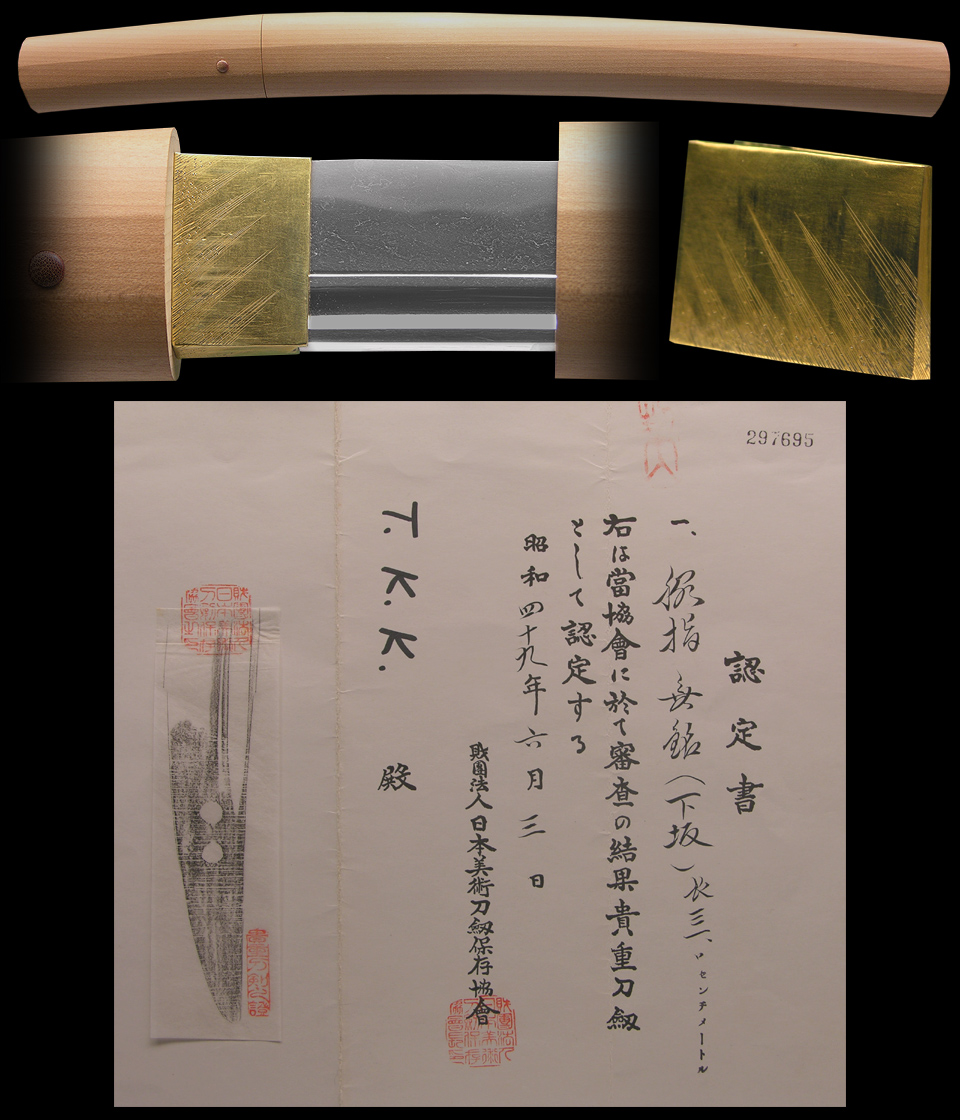 297695
認定書
一、脇指 無銘(下坂)長三一、〇センチメートル
右は當協會に於て審査の結果貴重刀劔
として認定する
昭和四十九年六月三日
財團法人日本美術刀劔保存協會
T.K.K. 殿